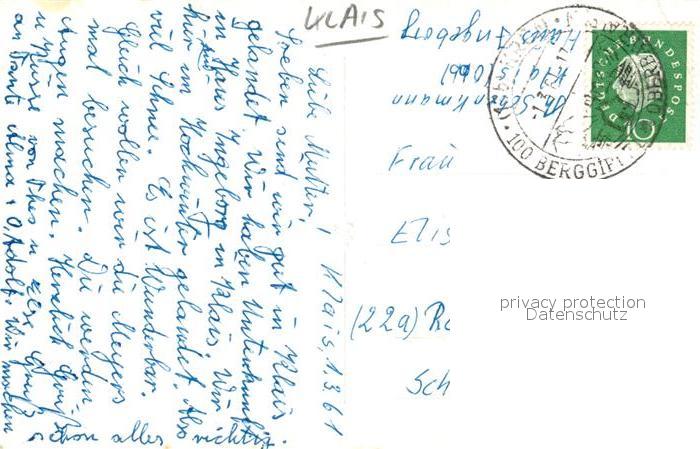 KLAIS
Klais, 1.3.61
Liebe Mutter!
Soeben sind wir gut in Klais
gelandet. Wir haben Unterkunft
in Haus Ingeborg in Klais. Wir
hier im Hochwinter gelandet. Also
viel Schnee. Es ist Wunderbar.
Gleich wollen wir die Meyers
mal besuchen. Die werden
Augen machen. Herzlich Grüße
u Küsse von Thes u
an Tante Alma + O. Adolf. Wir machen
schon alles richtig.
Haus Ingeborg
Klais Obb
Schenkmann
Frau
Elis
(22a) Ra
Sch
DEUTSCHE BUNDESPOST
10
100 BERGGIPF
privacy protection
Datenschutz